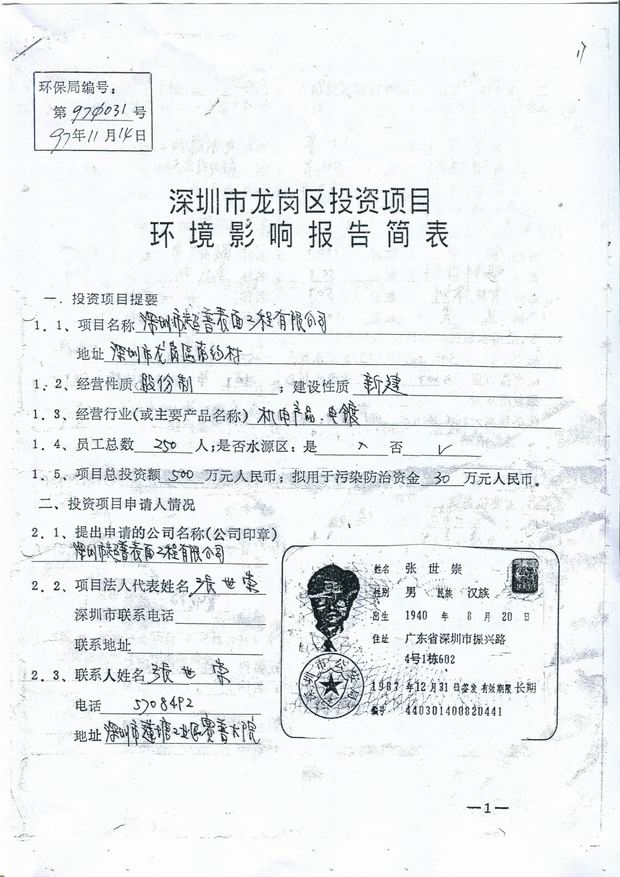 环保局编号：
第 970031 号
97年11月14日
深圳市龙岗区投资项目
环境影响报告简表
一. 投资项目提要
1.1、项目名称 深圳市超普表面工程有限公司
地址 深圳市龙岗区南约村
1.2、经营性质 股份制 ；建设性质 新建
1.3、经营行业(或主要产品名称) 机电产品、电镀
1.4、员工总数 250 人;是否水源区：是 × 否 √
1.5、项目总投资额 500 万元人民币；拟用于污染防治资金 30 万元人民币。
二、投资项目申请人情况
2.1、提出申请的公司名称(公司印章)
深圳市超普表面工程有限公司
2.2、项目法人代表姓名 张世崇
深圳市联系电话
联系地址
2.3、联系人姓名 张世崇
电话 5508492
地址 深圳市 工业区 大院
姓名 张世崇
性别 男 民族 汉族
出生 1940 年 8 月 20 日
住址 广东省深圳市振兴路
4号1栋602
1987 年12月31日签发 有效期限 长期
编号 440301400820441
深圳市公安局
—1—